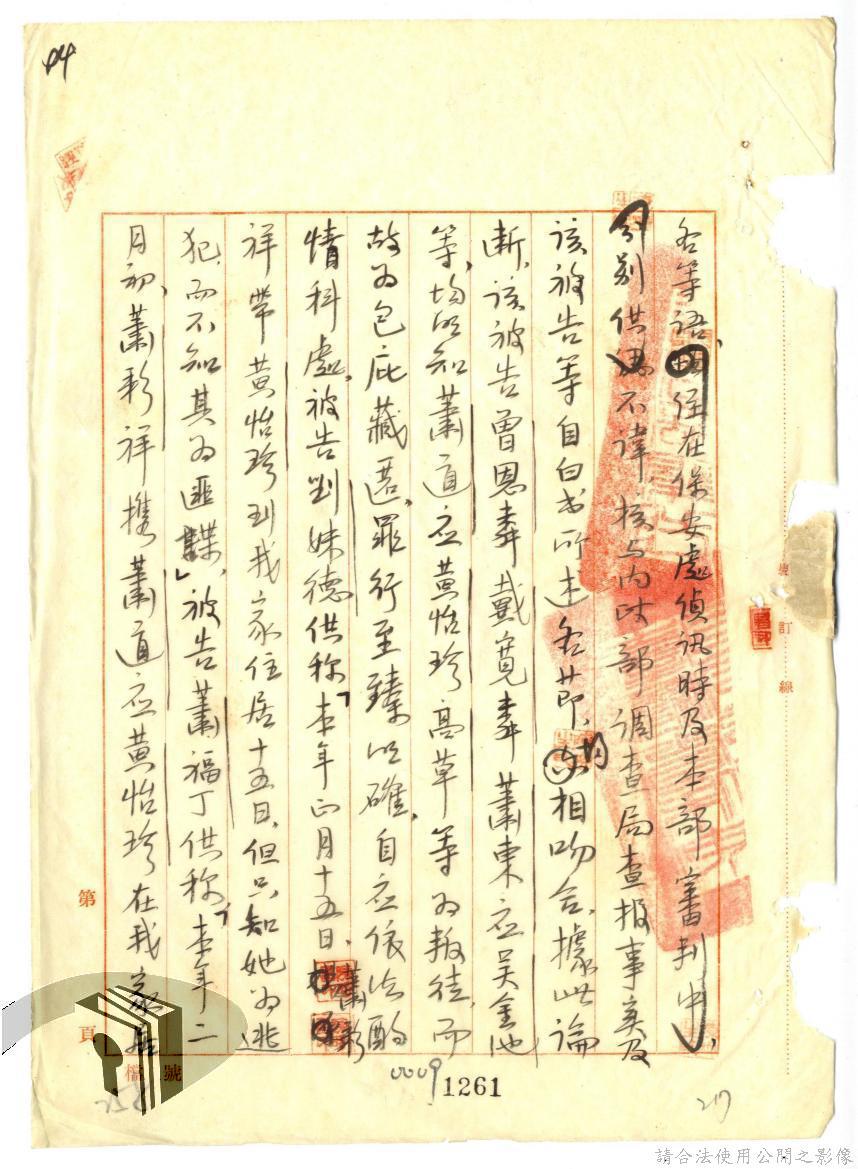 各等語,經在保安處偵訊時及本部審判中,
分別供認不諱,核与內政部調查局查报事实及
該被告等自白书所述各节,均相吻合,據此論
断,該被告曾恩舜戴寬舜蕭東应吳金地
等,均明知蕭道应黄怡珍高草等为叛徒,而
故为包庇藏匿,罪行至臻明確,自应依法酌
情科處,被告刘妹德供称「本年正月十五日,蕭彩
祥带黄怡珍到我家住居十五日,但只知她为逃
犯,而不知其为匪諜」,被告蕭福丁供称「本年二
月初,蕭彩祥携蕭道应黄怡珍在我家
44
訂
線
第
頁
檔
號
0009
1261
217
請合法使用公開之影像